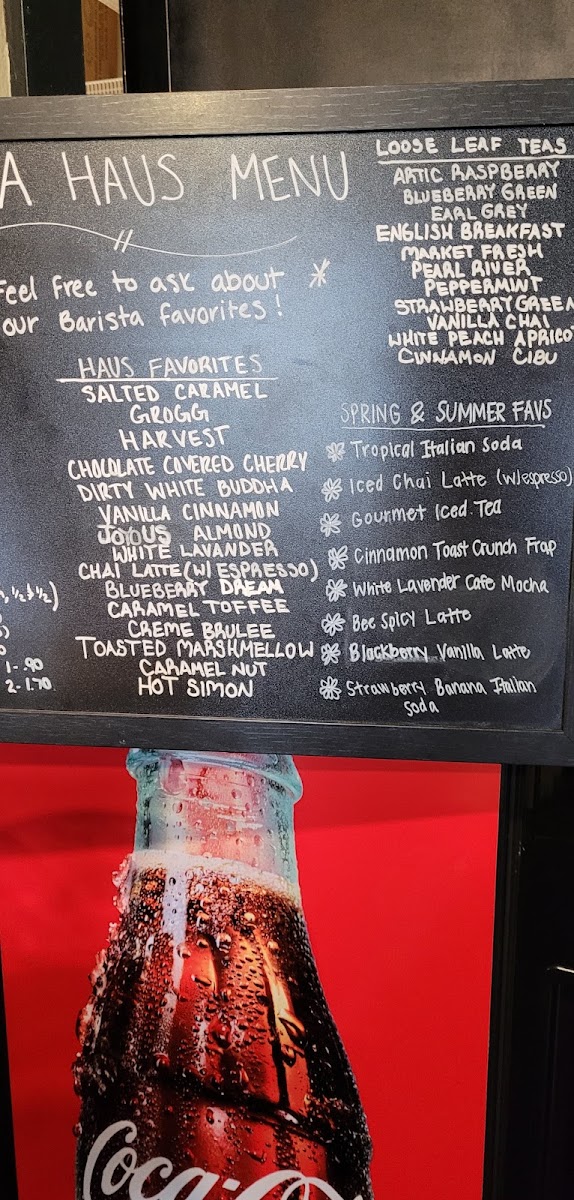 A HAUS MENU
Feel free to ask about
our Barista favorites!
HAUS FAVORITES
SALTED CARAMEL
GROGG
HARVEST
CHOCOLATE COVERED CHERRY
DIRTY WHITE BUDDHA
VANILLA CINNAMON
JOYOUS ALMOND
WHITE LAVANDER
CHAI LATTE (W/ ESPRESSO)
BLUEBERRY DREAM
CARAMEL TOFFEE
CREME BRULEE
TOASTED MARSHMELLOW
CARAMEL NUT
HOT SIMON
, ½ & ½)
1-.90
2-1.70
LOOSE LEAF TEAS
ARTIC RASPBERRY
BLUEBERRY GREEN
EARL GREY
ENGLISH BREAKFAST
MARKET FRESH
PEARL RIVER
PEPPERMINT
STRAWBERRY GREEN
VANILLA CHAI
WHITE PEACH APRICO
CINNAMON CIBU
SPRING & SUMMER FAVS
Tropical Italian Soda
Iced Chai Latte (w/espresso)
Gourmet Iced Tea
Cinnamon Toast Crunch Frap
White Lavender Cafe Mocha
Bee Spicy Latte
Blackberry Vanilla Latte
Strawberry Banana Italian
Soda
Coca-Co